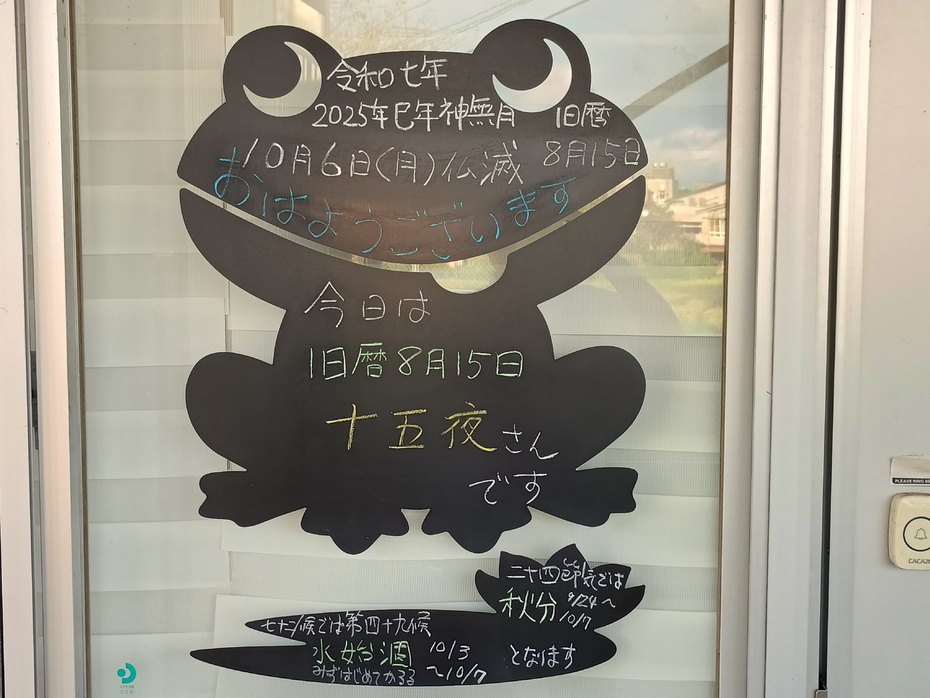 令和七年
2025年巳年神無月 旧暦
10月6日(月)仏滅 8月15日
おはようございます
今日は
旧暦8月15日
十五夜さん
です
二十四節気では
秋分 9/24～
10/7
七十二候では第四十九候
水始涸 10/3
みずはじめてかるる ～10/7
となります